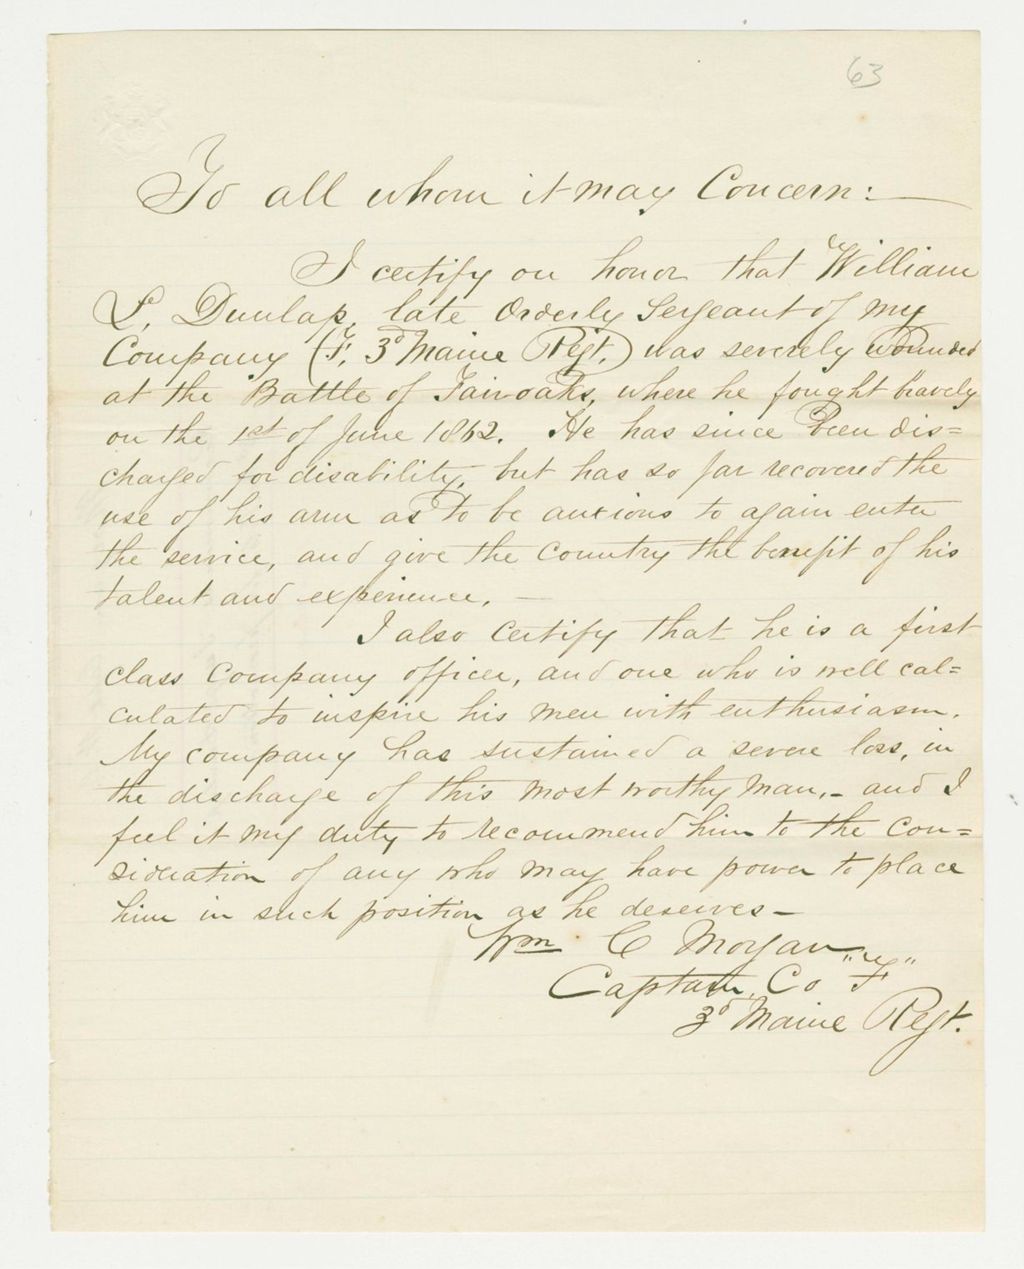 63
To all whom it may Concern:
I certify on honor that William
L. Dunlap, late Orderly Sergeant of my
Company (F. 3d Maine Regt.) was severely wounded
at the Battle of Fairoaks, where he fought bravely
on the 1st of June 1862. He has since been dis=
charged for disability, but has so far recovered the
use of his arm as to be anxious to again enter
the service, and give the Country the benefit of his
talent and experience.
I also certify that he is a first
class Company officer, and one who is well cal=
culated to inspire his men with enthusiasm.
My company has sustained a severe loss, in
the discharge of this most worthy man,- and I
feel it my duty to recommend him to the con=
sideration of any who may have power to place
him in such position as he deserves-
Wm C Morgan
Captain, Co "F"
3d Maine Regt.